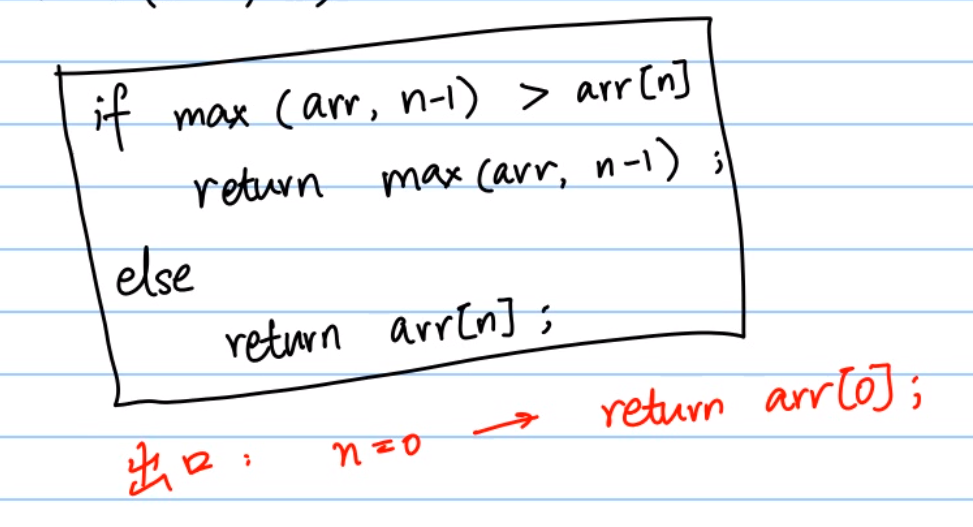 if max (arr, n-1) > arr[n]
return max (arr, n-1) ;
else
return arr[n] ;
出口: n=0 → return arr[0];